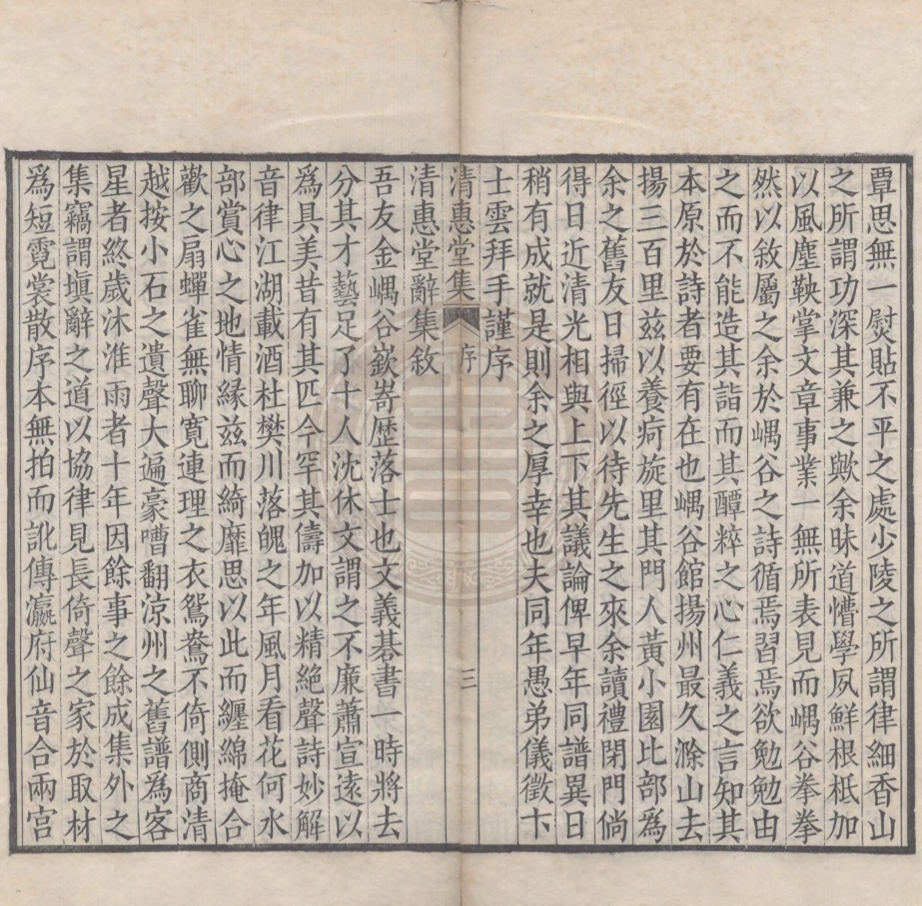 覃思無一熨貼不平之處少陵之所謂律細香山
之所謂功深其兼之歟余昧道懵學夙鮮根柢加
以風塵鞅掌文章事業一無所表見而嵎谷拳拳
然以敘屬之余於嵎谷之詩循焉習焉欲勉勉由
之而不能造其詣而其醰粹之心仁義之言知其
本原於詩者要有在也嵎谷館揚州最久滁山去
揚三百里茲以養疴旋里其門人黃小園比部為
余之舊友日掃徑以待先生之來余讀禮閉門倘
得日近清光相與上下其議論俾早年同譜異日
稍有成就是則余之厚幸也夫同年愚弟儀徵卞
士雲拜手謹序
清惠堂集 序 三
清惠堂辭集敘
吾友金嵎谷嶔嵜歷落士也文義碁書一時將去
分其才藝足了十人沈休文謂之不廉蕭宣遠以
為具美昔有其匹今罕其儔加以精絕聲詩妙解
音律江湖載酒杜樊川落魄之年風月看花何水
部賞心之地情緣茲而綺靡思以此而纏綿掩合
歡之扇蟬雀無聊寬連理之衣鴛鴦不倚側商清
越按小石之遺聲大遍豪嘈翻涼州之舊譜為客
星者終歲沐淮雨者十年因餘事之餘成集外之
集竊謂塡辭之道以協律見長倚聲之家於取材
為短霓裳散序本無拍而訛傳瀛府仙音合兩宮